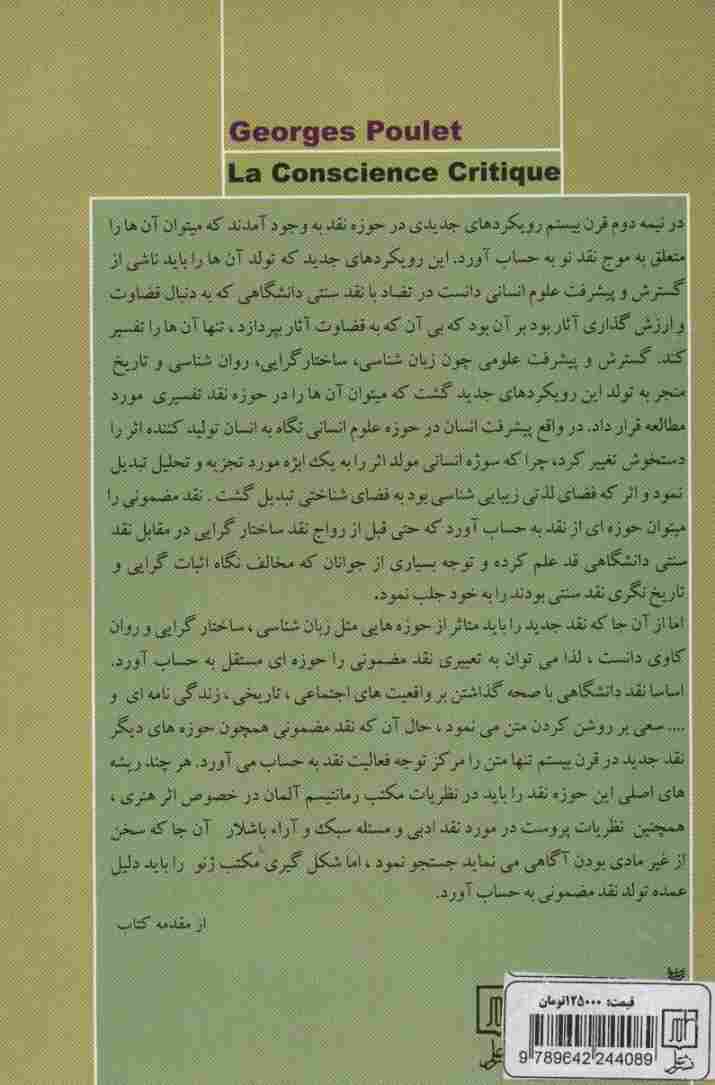 Georges Poulet
La Conscience Critique
در نیمه دوم قرن بیستم رویکردهای جدیدی در حوزه نقد به وجود آمدند که میتوان آن ها را
متعلق به موج نقد نو به حساب آورد. این رویکردهای جدید که تولد آن ها را باید ناشی از
گسترش و پیشرفت علوم انسانی دانست در تضاد با نقد سنتی دانشگاهی که به دنبال قضاوت
و ارزش گذاری آثار بود بر آن بود که بی آن که به قضاوت آثار بپردازد ، تنها آن ها را تفسیر
کند. گسترش و پیشرفت علومی چون زبان شناسی، ساختارگرایی، روان شناسی و تاریخ
منجر به تولد این رویکردهای جدید گشت که میتوان آن ها را در حوزه نقد تفسیری مورد
مطالعه قرار داد. در واقع پیشرفت انسان در حوزه علوم انسانی نگاه به انسان تولید کننده اثر را
دستخوش تغییر کرد، چرا که سوژه انسانی مولد اثر را به یک ابژه مورد تجزیه و تحلیل تبدیل
نمود و اثر که فضای لذتی زیبایی شناسی بود به فضای شناختی تبدیل گشت . نقد مضمونی را
میتوان حوزه ای از نقد به حساب آورد که حتی قبل از رواج نقد ساختار گرایی در مقابل نقد
سنتی دانشگاهی قد علم کرده و توجه بسیاری از جوانان که مخالف نگاه اثبات گرایی و
تاریخ نگری نقد سنتی بودند را به خود جلب نمود.
اما از آن جا که نقد جدید را باید متاثر از حوزه هایی مثل زبان شناسی ، ساختار گرایی و روان
کاوی دانست ، لذا می توان به تعبیری نقد مضمونی را حوزه ای مستقل به حساب آورد.
اساسا نقد دانشگاهی با صحه گذاشتن بر واقعیت های اجتماعی ، تاریخی ، زندگی نامه ای و
.... سعی بر روشن کردن متن می نمود ، حال آن که نقد مضمونی همچون حوزه های دیگر
نقد جدید در قرن بیستم تنها متن را مرکز توجه فعالیت نقد به حساب می آورد. هر چند ریشه
های اصلی این حوزه نقد را باید در نظریات مکتب رمانتیسم آلمان در خصوص اثر هنری ،
همچنین نظریات پروست در مورد نقد ادبی و مسئله سبک و آراء باشلار آن جا که سخن
از غیر مادی بودن آگاهی می نماید جستجو نمود ، اما شکل گیری مکتب ژنو را باید دلیل
عمده تولد نقد مضمونی به حساب آورد.
از مقدمه کتاب
قیمت: ۱۲۵۰۰۰تومان
9 789642 244089
نشر علم